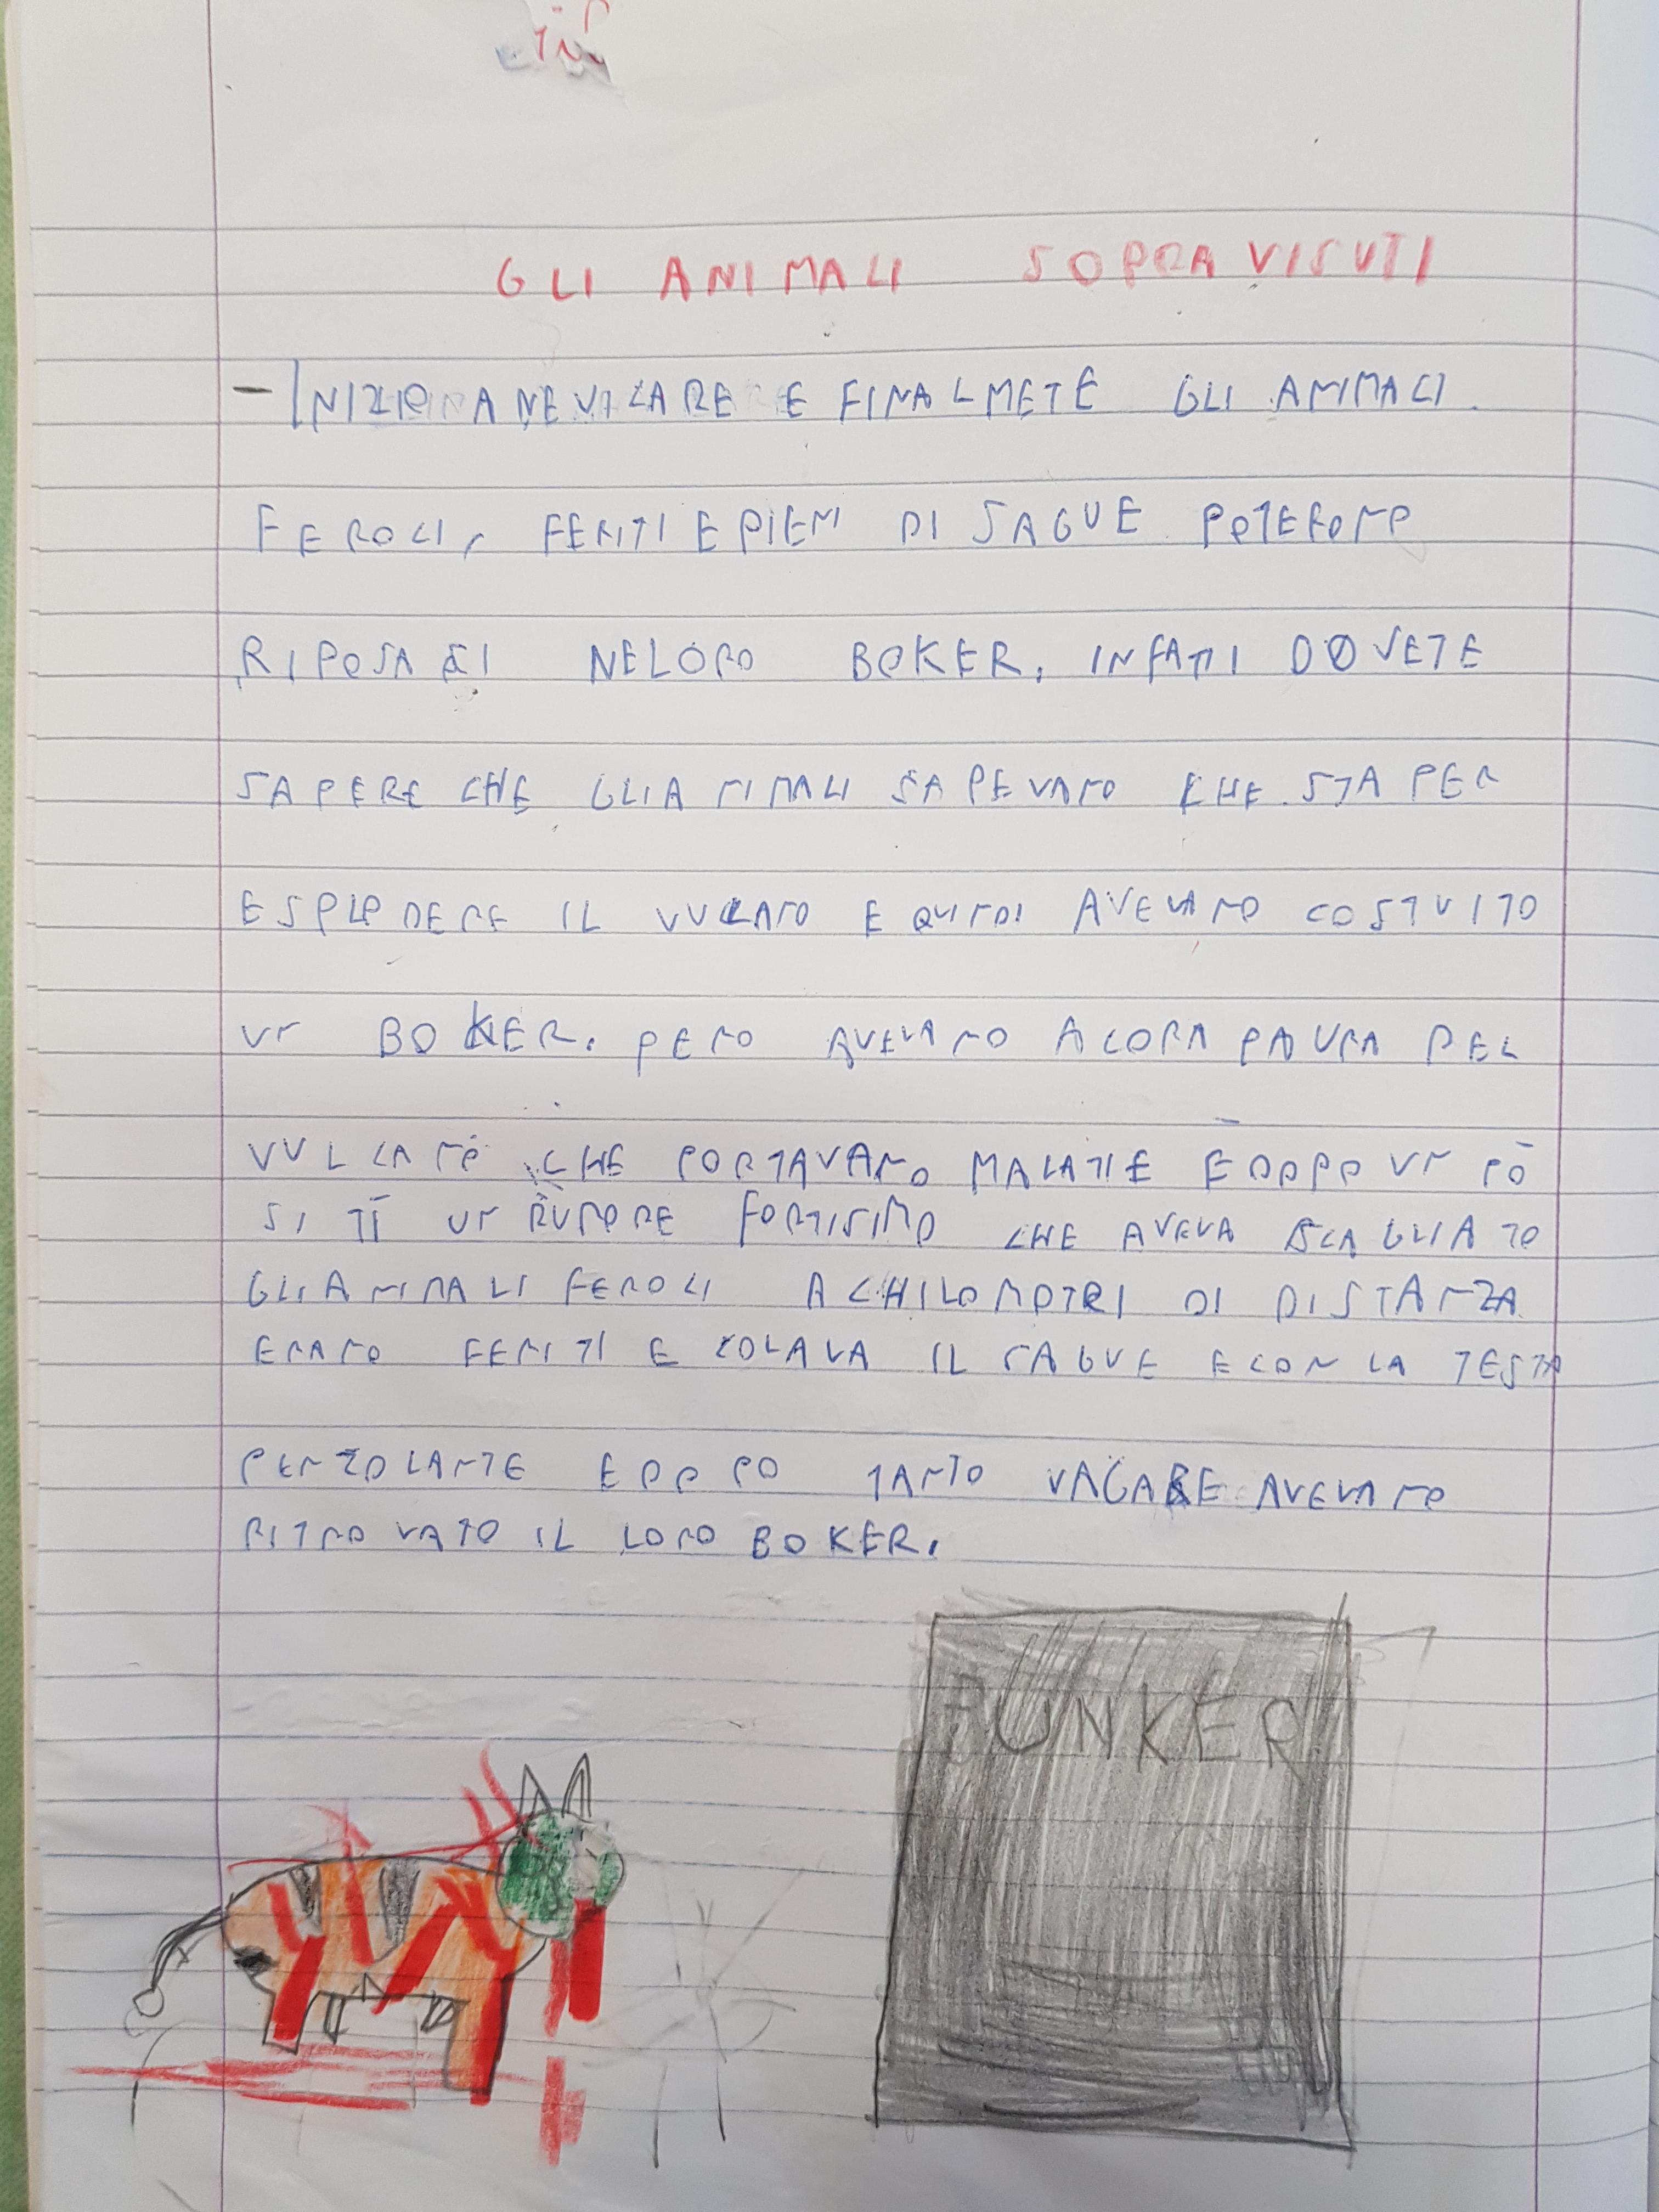 GLI ANIMALI SOPRAVISUTI
- INIZIO A NEVICARE E FINALMETE GLI ANIMALI
FEROCI, FERITI E PIENI DI SAGUE POTERONO
RIPOSASI NELORO BOKER. INFATI DOVETE
SAPERE CHE GLI ANIMALI SAPEVANO CHE STA PER
ESPLODERE IL VULCANO E QUINDI AVEVANO COSTUITO
UN BOKER. PERO AVEVANO ACORA PAURA DEL
VULCANO CHE PORTAVANO MALATIE E DOPO UN PÒ
SI TÌ UN RUMORE FORTISIMO CHE AVEVA SCAGLIATO
GLI ANIMALI FEROCI A CHILOMOTRI DI DISTANZA
ERANO FERITI E COLAVA IL SAGUE E CON LA TESTA
PENZOLANTE E DOPO TANTO VAGARE AVEVANO
RITROVATO IL LORO BOKER.
BUNKER